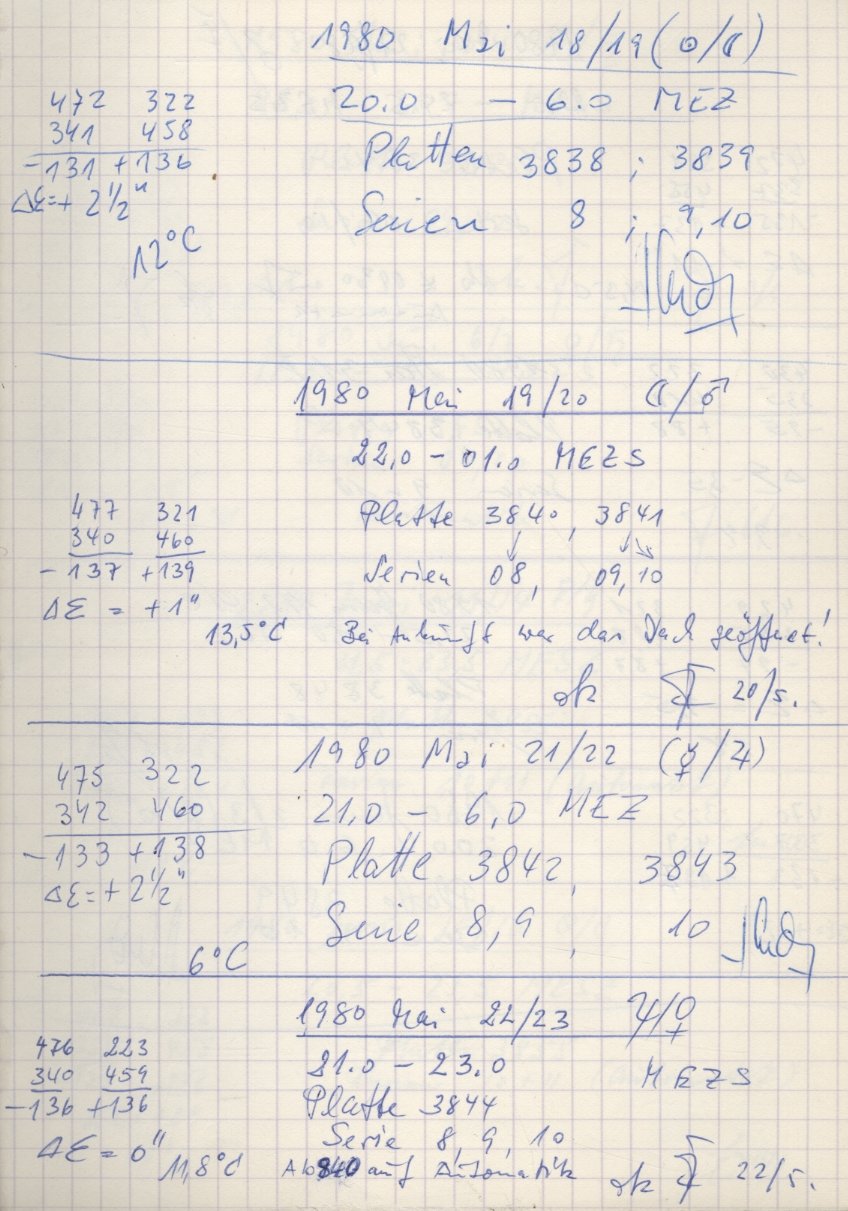 1980 Mai 18/19 (☉/☾)
20.0 – 6.0 MEZ
472 322
341 458
-131 +136
Δε=+2½"
12°C
Platten 3838 ; 3839
Serien 8 ; 9,10
1980 Mai 19/20 ☾/♂
22,0 – 01.0 MEZS
477 321
340 460
-137 +139
Δε = +1"
13,5°C
Platte 3840, 3841
Serien 08, 09,10
Bei Ankunft war das Dach geöffnet!
ok 20/5.
1980 Mai 21/22 (☿/♃)
21,0 – 6,0 MEZ
475 322
342 460
-133 +138
Δε=+2½"
6°C
Platte 3842, 3843
Serie 8,9, 10
1980 Mai 22/23 ♃/♀
21.0 – 23.0 MEZS
476 223
340 459
-136 +136
Δε = 0"
11,8°C
Platte 3844
Serie 8, 9, 10
Ab 840 auf Automatik
ok 22/5.